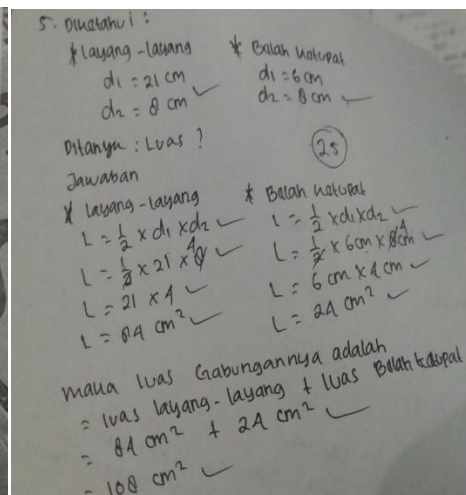 5. Diketahui :
* Layang-layang
d₁ = 21 cm
d₂ = 8 cm ✓
* Belah Ketupat
d₁ = 6 cm
d₂ = 8 cm ✓
Ditanya : Luas ?
25
Jawaban
* Layang-layang
L = 1/2 x d₁ x d₂ ✓
L = 1/2 x 21 x 8 4 ✓
L = 21 x 4 ✓
L = 84 cm² ✓
* Belah Ketupat
L = 1/2 x d₁ x d₂ ✓
L = 1/2 x 6 cm x 8 cm 4 ✓
L = 6 cm x 4 cm ✓
L = 24 cm² ✓
Maka luas Gabungannya adalah
= luas layang-layang + luas Belah ketupat
= 84 cm² + 24 cm² ✓
= 108 cm² ✓